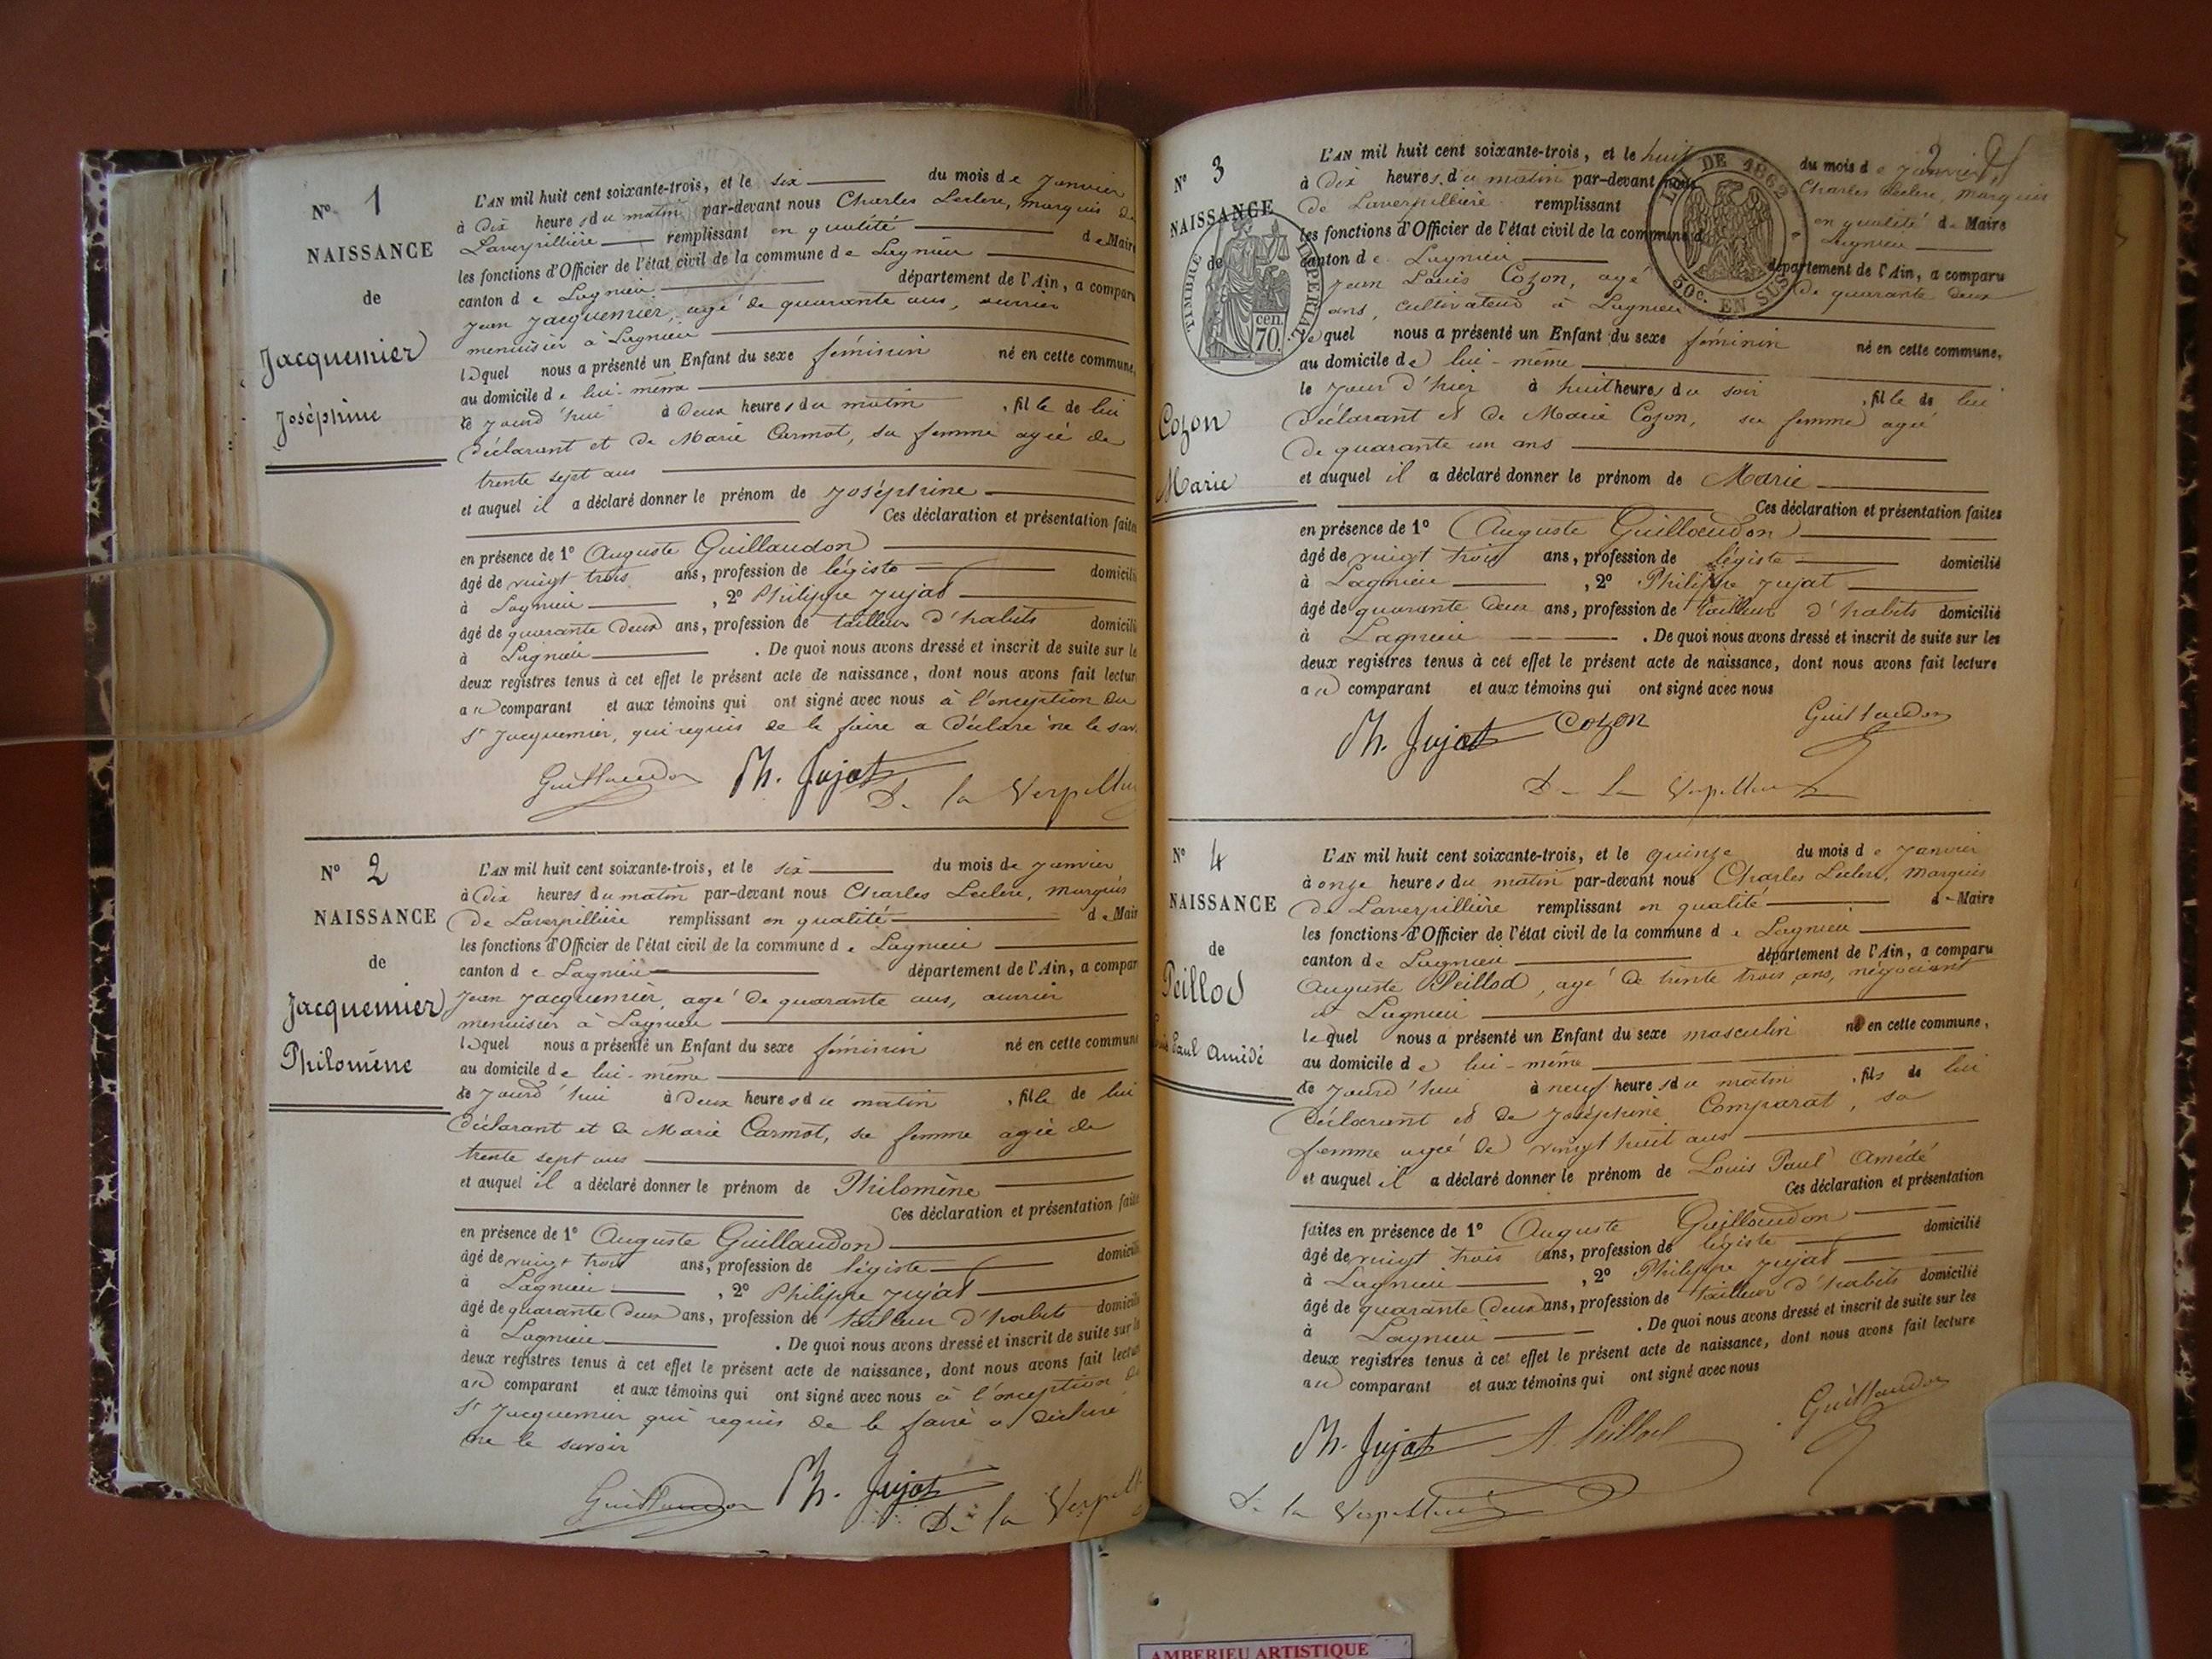 N° 1
NAISSANCE
de
Jacquemier
Joséphine
L'AN mil huit cent soixante-trois, et le six du mois de Janvier
à Dix heures du matin par-devant nous Charles Leclerc, marquis de
Laverpillière remplissant en qualité de Maire
les fonctions d'Officier de l'état civil de la commune de Lagnieu
canton de Lagnieu département de l'Ain, a comparu
Jean Jacquemier, agé de quarante ans, ouvrier
menuisier à Lagnieu
lequel nous a présenté un Enfant du sexe féminin né en cette commune,
au domicile de lui-même
le jourd'hui à deux heures du matin, fille de lui
déclarant et de Marie Carmot, sa femme agée de
trente sept ans
et auquel il a déclaré donner le prénom de Joséphine
Ces déclaration et présentation faites
en présence de 1° Auguste Guillaudon
âgé de vingt trois ans, profession de légiste domicilié
à Lagnieu, 2° Philippe Jujat
âgé de quarante deux ans, profession de tailleur d'habits domicilié
à Lagnieu. De quoi nous avons dressé et inscrit de suite sur le
deux registres tenus à cet effet le présent acte de naissance, dont nous avons fait lectur
au comparant et aux témoins qui ont signé avec nous à l'exception du
Sr Jacquemier, qui requis de le faire a déclaré ne le sav.
Guillaudon Ph. Jujat
De la Verpillière
N° 2
NAISSANCE
de
Jacquemier
Philomène
L'AN mil huit cent soixante-trois, et le six du mois de Janvier
à Dix heures du matin par-devant nous Charles Leclerc, marquis
de Laverpillière remplissant en qualité de Mair
les fonctions d'Officier de l'état civil de la commune de Lagnieu
canton de Lagnieu département de l'Ain, a compar
Jean Jacquemier, agé de quarante ans, ouvrier
menuisier à Lagnieu
lequel nous a présenté un Enfant du sexe féminin né en cette commune
au domicile de lui-même
le jourd'hui à deux heures du matin, fille de lui
déclarant et de Marie Carmot, sa femme agée de
trente sept ans
et auquel il a déclaré donner le prénom de Philomène
Ces déclaration et présentation faite
en présence de 1° Auguste Guillaudon
âgé de vingt trois ans, profession de légiste domicilié
à Lagnieu, 2° Philippe Jujat
âgé de quarante deux ans, profession de tailleur d'habits domicilié
à Lagnieu. De quoi nous avons dressé et inscrit de suite sur le
deux registres tenus à cet effet le présent acte de naissance, dont nous avons fait lectur
au comparant et aux témoins qui ont signé avec nous à l'exception du
Sr Jacquemier qui requis de le faire a déclaré
ne le savoir
Guillaudon Ph. Jujat
De la Verpill
2
N° 3
NAISSANCE
de
Cozon
Marie
TIMBRE IMPERIAL
70 cen
LOI DE 1862
50c. EN SUS
L'AN mil huit cent soixante-trois, et le huit du mois de Janvier
à Dix heures du matin par-devant nous Charles Leclerc, marquis
de Laverpillière remplissant en qualité de Maire
les fonctions d'Officier de l'état civil de la commune de Lagnieu
canton de Lagnieu département de l'Ain, a comparu
Jean Louis Cozon, agé de quarante deux
ans, cultivateur à Lagnieu
lequel nous a présenté un Enfant du sexe féminin né en cette commune,
au domicile de lui-même
le jour d'hier à huit heures du soir, fille de lui
déclarant et de Marie Cozon, sa femme agée
de quarante un ans
et auquel il a déclaré donner le prénom de Marie
Ces déclaration et présentation faites
en présence de 1° Auguste Guillaudon
âgé de vingt trois ans, profession de légiste domicilié
à Lagnieu, 2° Philippe Jujat
âgé de quarante deux ans, profession de tailleur d'habits domicilié
à Lagnieu. De quoi nous avons dressé et inscrit de suite sur les
deux registres tenus à cet effet le présent acte de naissance, dont nous avons fait lecture
au comparant et aux témoins qui ont signé avec nous
Ph. Jujat Cozon Guillaudon
De la Verpillière
N° 4
NAISSANCE
de
Peillod
Louis Paul Amédé
L'AN mil huit cent soixante-trois, et le quinze du mois de Janvier
à onze heures du matin par-devant nous Charles Leclerc, Marquis
de Laverpillière remplissant en qualité de Maire
les fonctions d'Officier de l'état civil de la commune de Lagnieu
canton de Lagnieu département de l'Ain, a comparu
Auguste Peillod, agé de trente trois ans, négociant
à Lagnieu
lequel nous a présenté un Enfant du sexe masculin né en cette commune,
au domicile de lui-même
le jourd'hui à neuf heures du matin, fils de lui
déclarant et de Joséphine Comparat, sa
femme agée de vingt huit ans
et auquel il a déclaré donner le prénom de Louis Paul Amédé
Ces déclaration et présentation
faites en présence de 1° Auguste Guillaudon domicilié
âgé de vingt trois ans, profession de légiste
à Lagnieu, 2° Philippe Jujat
âgé de quarante deux ans, profession de tailleur d'habits domicilié
à Lagnieu. De quoi nous avons dressé et inscrit de suite sur les
deux registres tenus à cet effet le présent acte de naissance, dont nous avons fait lecture
au comparant et aux témoins qui ont signé avec nous
Ph. Jujat A. Peillod Guillaudon
De la Verpillière
AMBERIEU ARTISTIQUE